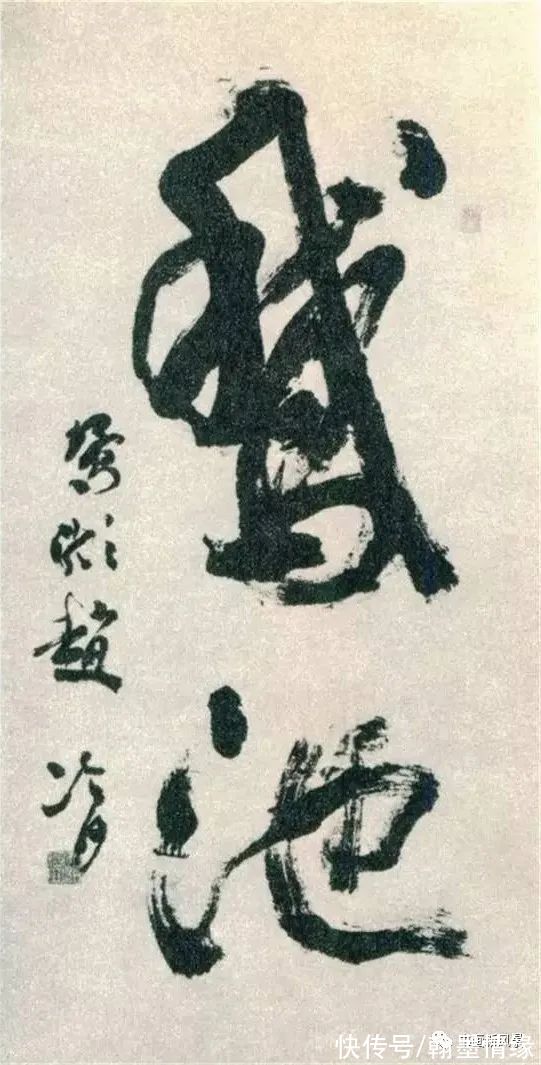 鵞池
趙冷月
快传号/翰墨情缘